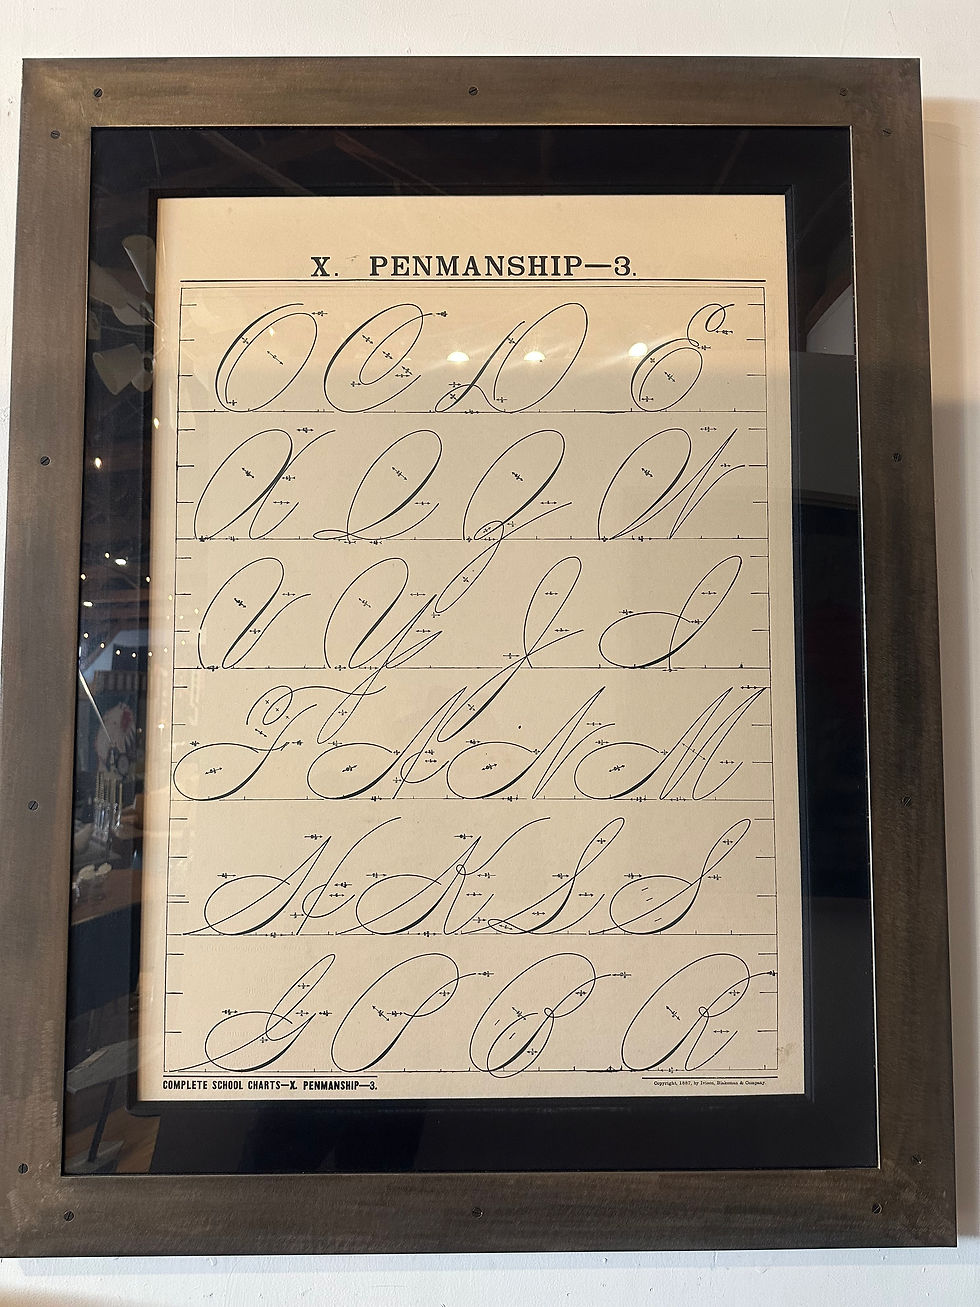 X. PENMANSHIP—3.
O C D E
X Q Z W
V Y J I
F A N M
H K L S
G P B R
COMPLETE SCHOOL CHARTS—X. PENMANSHIP—3.
Copyright, 1887, by Ivison, Blakeman & Company.